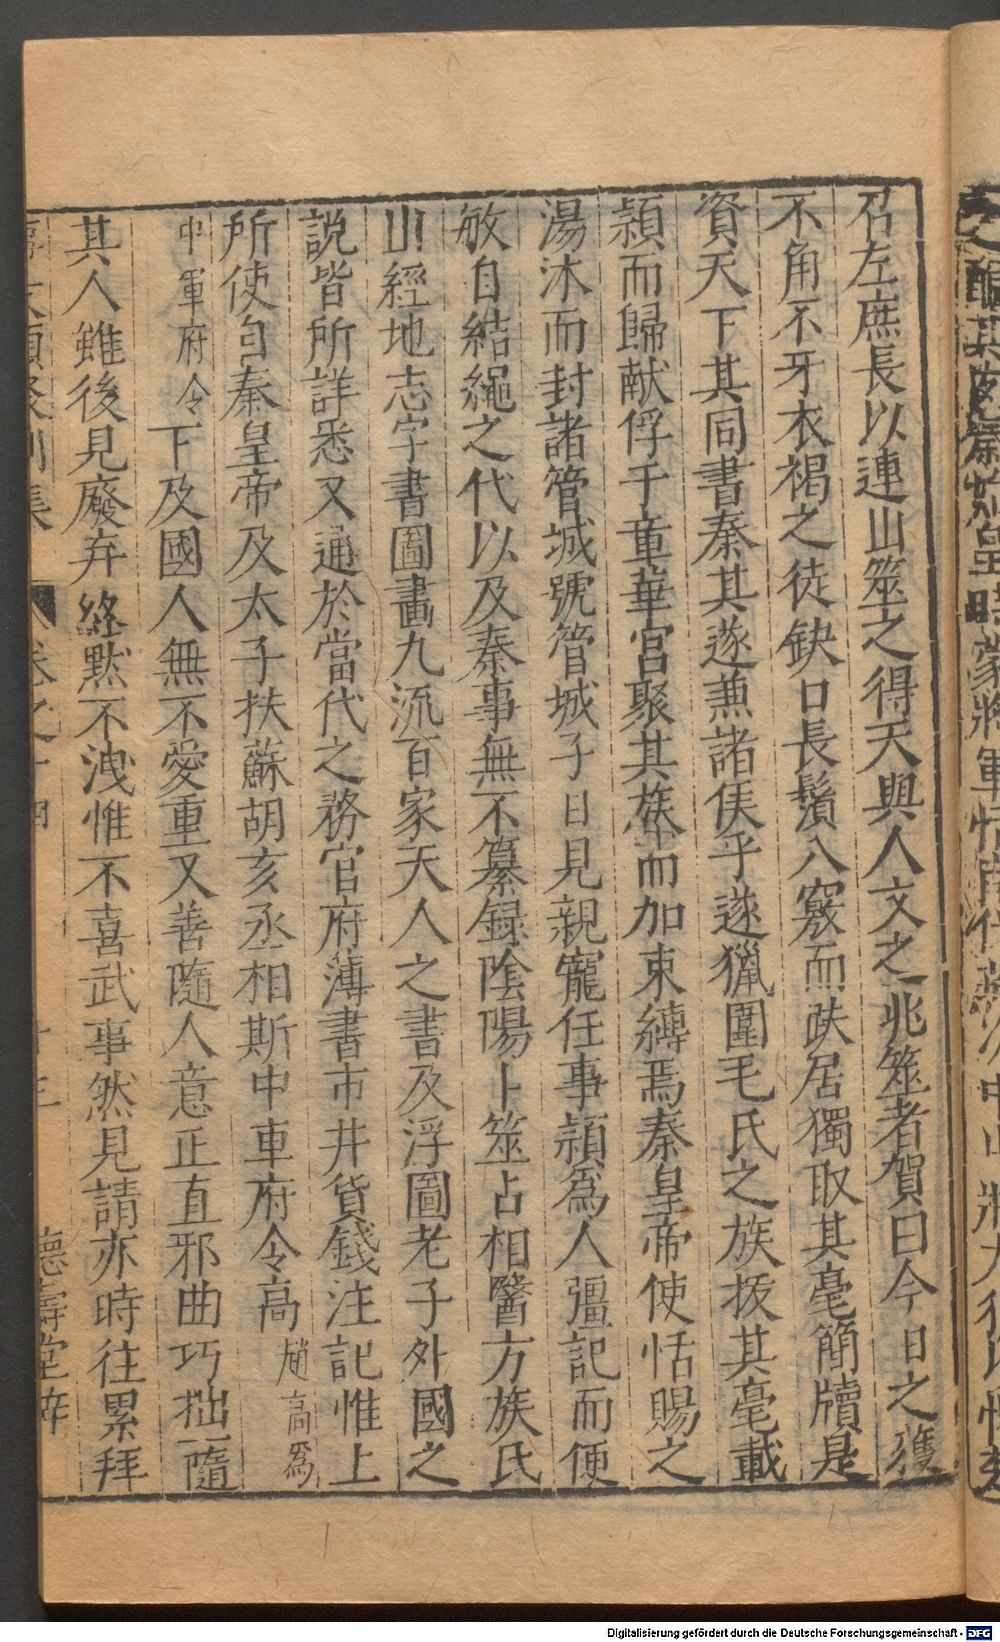 召左庶長以連山筮之得天與人文之兆筮者賀曰今日之獲
不角不牙衣褐之徒缺口長鬚八竅而趺居獨取其毫簡牘是
資天下其同書秦其遂兼諸侯乎遂獵圍毛氏之族拔其毫載
頴而歸献俘于童華宮聚其族而加束縛焉秦皇帝使恬賜之
湯沐而封諸管城號管城子日見親寵任事頴爲人彊記而便
敏自結繩之代以及秦事無不纂録陰陽卜筮占相醫方族氏
山經地志字書圖畫九流百家天人之書及浮圖老子外國之
說皆所詳悉又通於當代之務官府薄書市井貨錢注記惟上
所使自秦皇帝及太子扶蘇胡亥丞相斯中車府令高趙高爲
中軍府令下及國人無不愛重又善隨人意正直邪曲巧拙一隨
其人雖後見廢弃終黙不洩惟不喜武事然見請亦時往累拜
德壽堂梓
Digitalisierung gefördert durch die Deutsche Forschungsgemeinschaft - DFG